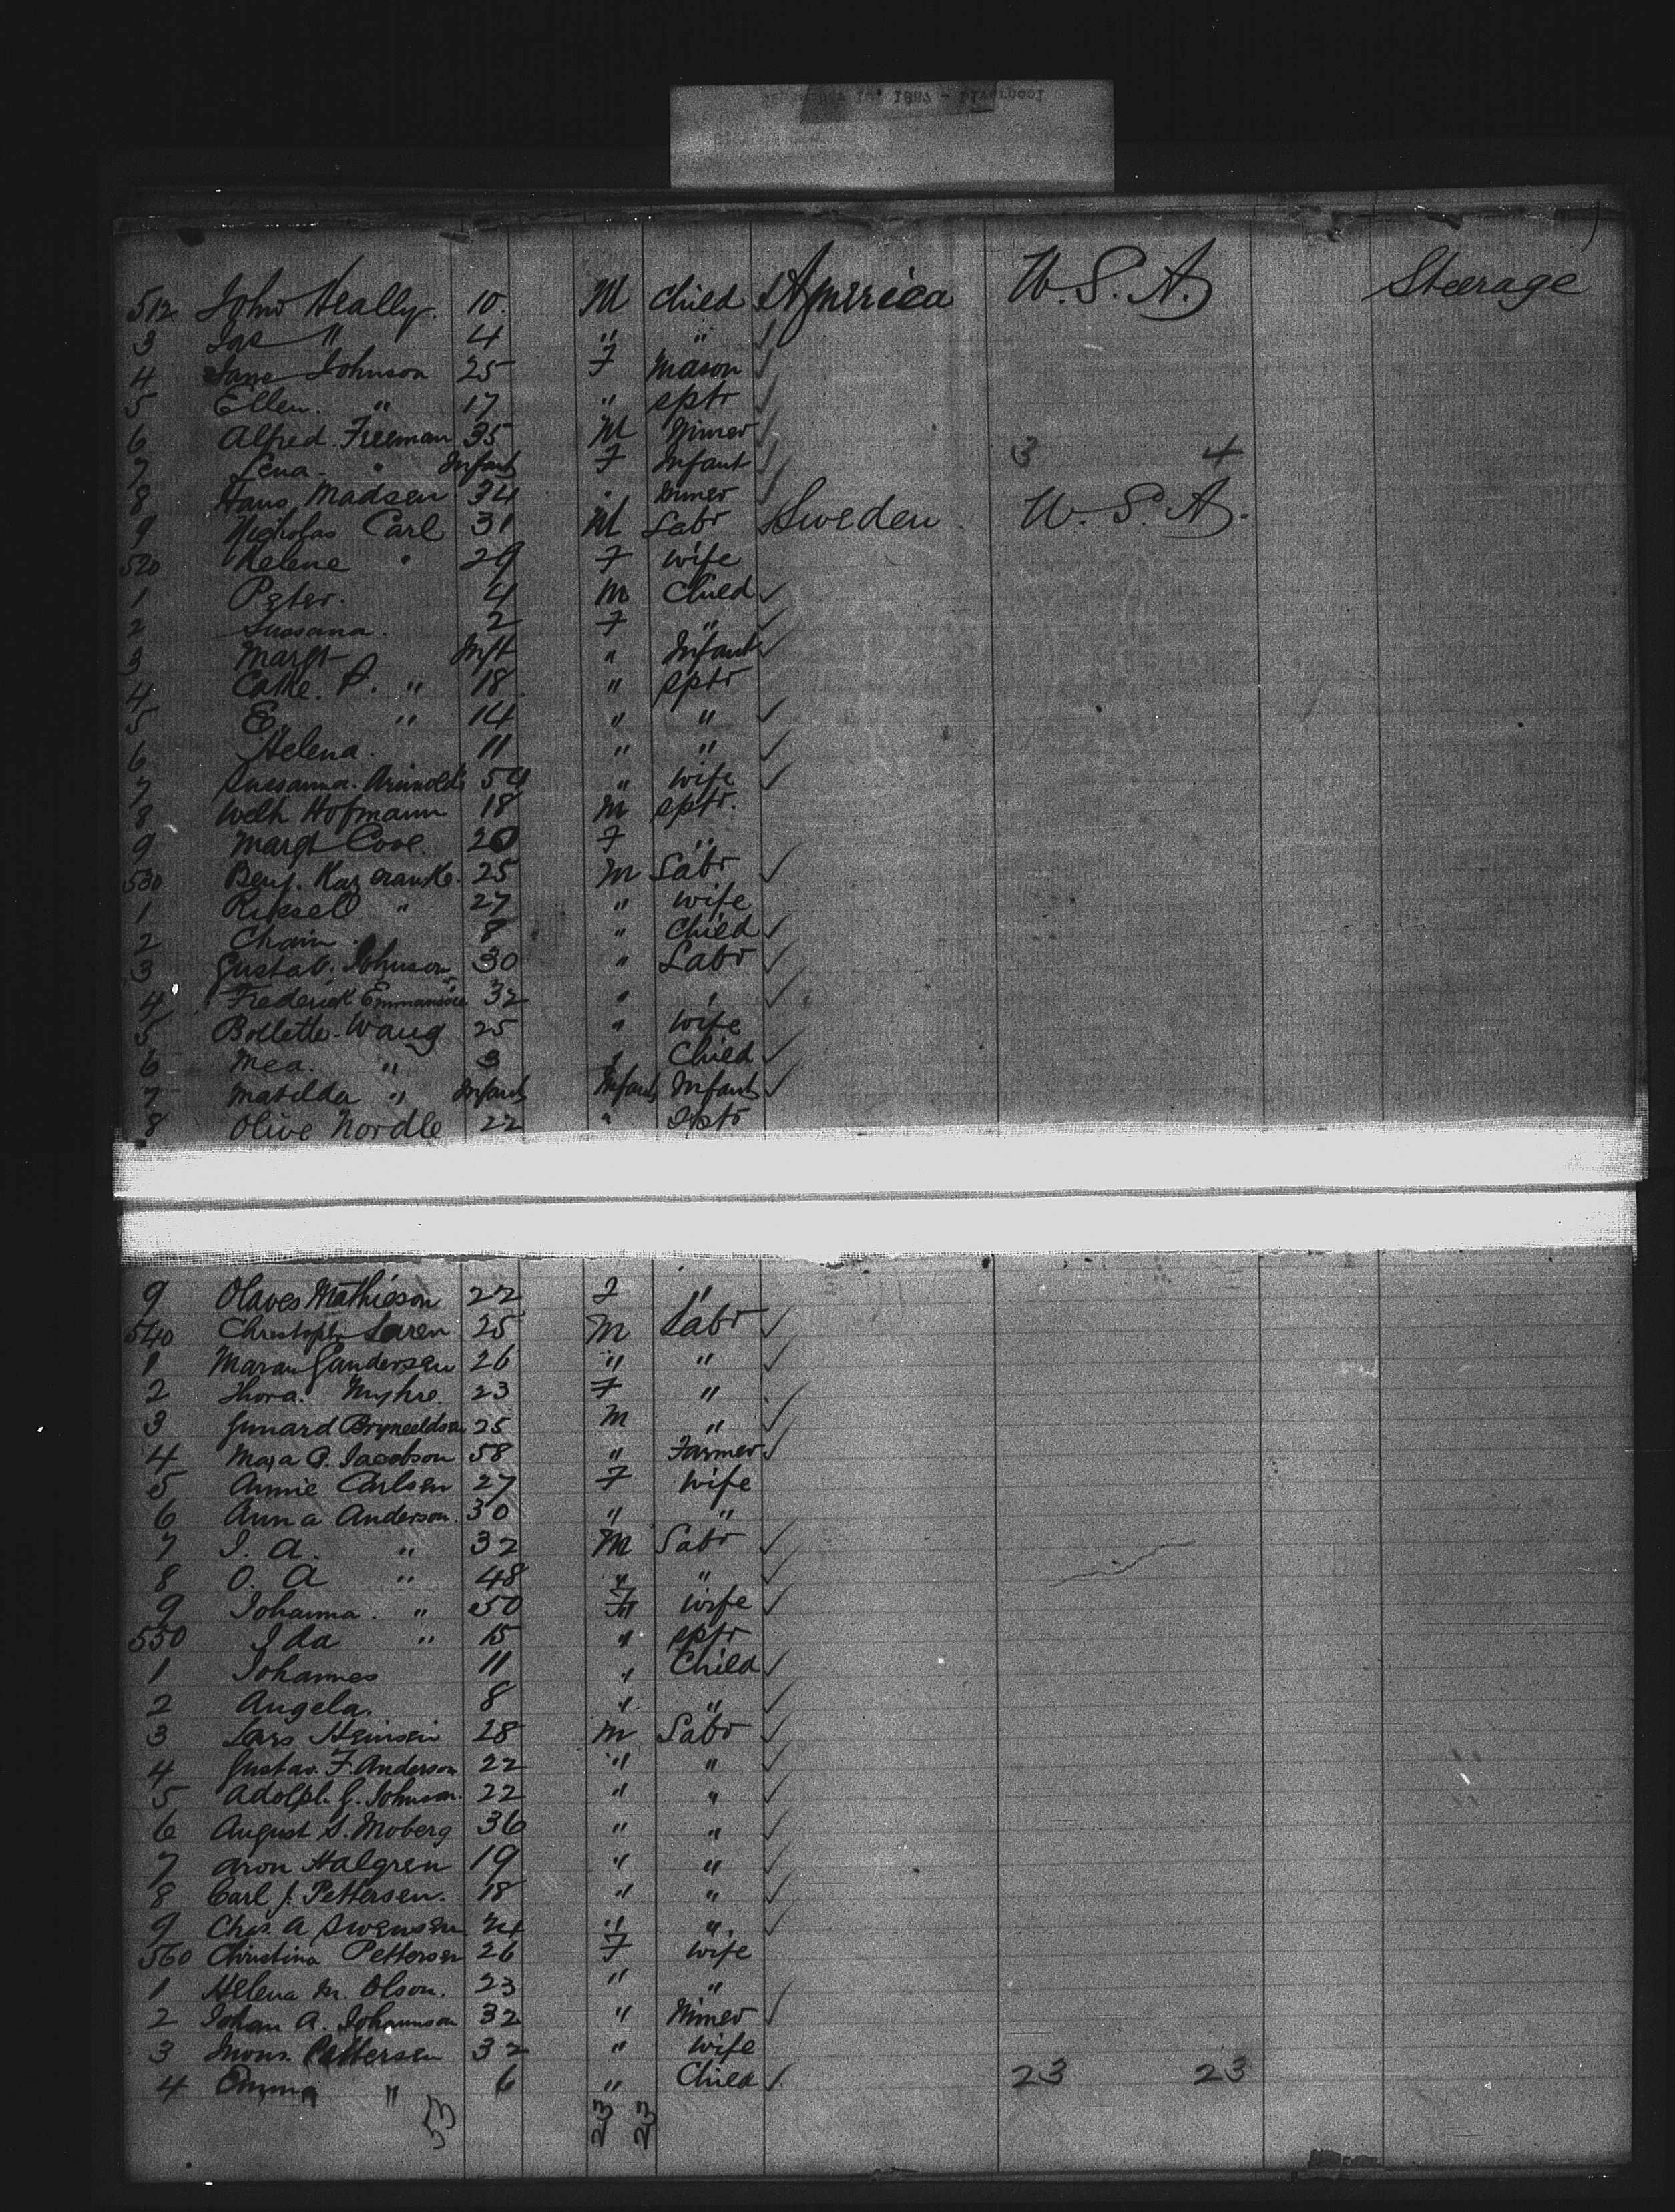 1887 - Liverpool
512 John Heally. 10. M Child America U.S.A. Steerage
3 Jas " 4 " "
4 Jane Johnson 25 F Mason
5 Ellen. " 17 " sptr
6 Alfred. Freeman 35 M Miner
7 Lena - " Infant F Infant 3 4
8 Hans Madsen 34 " Miner
9 Nicholas Carl 31 M Labr Sweden. U.S.A.
520 Helene " 29 F wife
1 Peter. 4 M Child
2 Sussana. 2 F "
3 Margt Inft " Infant
4 Cathe. P. " 18 " sptr
5 E. " 14 " "
6 Helena. 11 " "
7 Sussanna. 54 " wife
8 Welh Hofmann 18 M sptr.
9 Margt Cove. 20 F "
530 Benj. 25 M Labr
1 " 27 " wife
2 Chain 8 " Child
3 Gustav. Johnson 30 " Labr
4 Frederick 32 " "
5 Bollette - Waug 25 " wife
6 Mea. " 3 " Child
7 Matilda " Infant Infant Infant
8 Olive Nordle 22 " Sptr
9 Olaves Mathieson 22 F "
540 Christoph Laren 25 M Labr
1 Maran Gandersen 26 " "
2 Thora. Myhre. 23 F "
3 Gunard 25 M "
4 Maja G. Jacobson 58 " Farmer
5 Annie Carlsen 27 F Wife
6 Anna Anderson. 30 " "
7 J. A. " 32 M Labr
8 O. A " 48 " "
9 Johanna. " 50 F wife
550 Ida " 15 " sptr
1 Johannes 11 " Child
2 Angela. 8 " "
3 Lars 28 M Labr
4 Gustav. F. Anderson 22 " "
5 Adolph. G. Johnson. 22 " "
6 August S. Moberg 36 " "
7 Aron Halgren 19 " "
8 Carl J. Pettersen. 18 " "
9 Chas. A Swensen 24 " "
560 Christina Petterson 26 F wife
1 Helena M. Olson. 23 " "
2 Johan A. Johannson 32 " Miner
3 Pettersen 32 " wife
4 Emma " 6 " Child 23 23
53 23 23